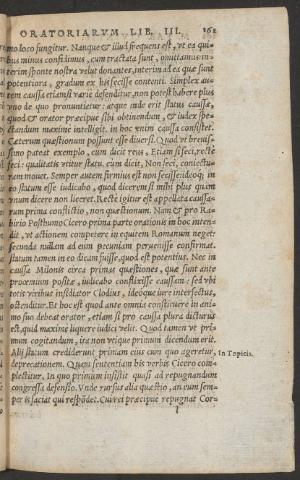 ORATORIARVM LIB. III. 161
imo loco fungitur. Nanque & illud frequens est, vt ea qui-
bus minus confidimus, cum tractata sunt, omittamus: in-
terim sponte nostra velut donantes, interim ad ea quæ sunt
potentiora, gradum ex his fecisse contenti. Simplex au-
tem caussa etiamsi varie defenditur, non potest habere plus
vno de quo pronuntietur: atque inde erit status caussæ,
quod & orator præcipue sibi obtinendum, & iudex spe-
ctandum maxime intelligit. in hoc enim caussa consistet.
Cæterum quæstionum possunt esse diuersi. Quod vt breuis-
simo pateat exemplo, cum dicit reus, Etiam si feci, recte
feci: qualitatis vtitur statu. cum dicit, Non feci, coniectu-
ram mouet. Semper autem firmius est non fecisse: ideoq; in
eo statum esse iudicabo, quod dicerem si mihi plus quam
vnum dicere non liceret. Recte igitur est appellata caussa-
rum prima conflictio, non quæstionum. Nam & pro Ra-
birio Posthumo Cicero prima parte orationis in hoc inten-
dit, vt actionem competere in equitem Romanum neget:
secunda nullam ad eum pecuniam peruenisse confirmat.
statum tamen in eo dicam fuisse, quod est potentius. Nec in
caussa Milonis circa primas quæstiones, quæ sunt ante
proœmium positæ, iudicabo conflixisse caussam: sed vbi
totis viribus insidiator Clodius, ideoque iure interfectus,
ostenditur. Et hoc est quod ante omnia constituere in ani-
mo suo debeat orator, etiam si pro caussa plura dicturus
est, quid maxime liquere iudici velit. Quod tamen vt pri-
mum cogitandum, ita non vtique primum dicendum erit.
Alij statum crediderunt primam eius cum quo ageretur,
deprecationem. Quam sententiam his verbis Cicero com-
plectitur. In quo primum insistit quasi ad repugnandum
congressa defensio. Vnde rursus alia quæstio, an eum sem-
per is faciat qui respōdet. Cui rei præcipue repugnat Cor-
In Topicis.